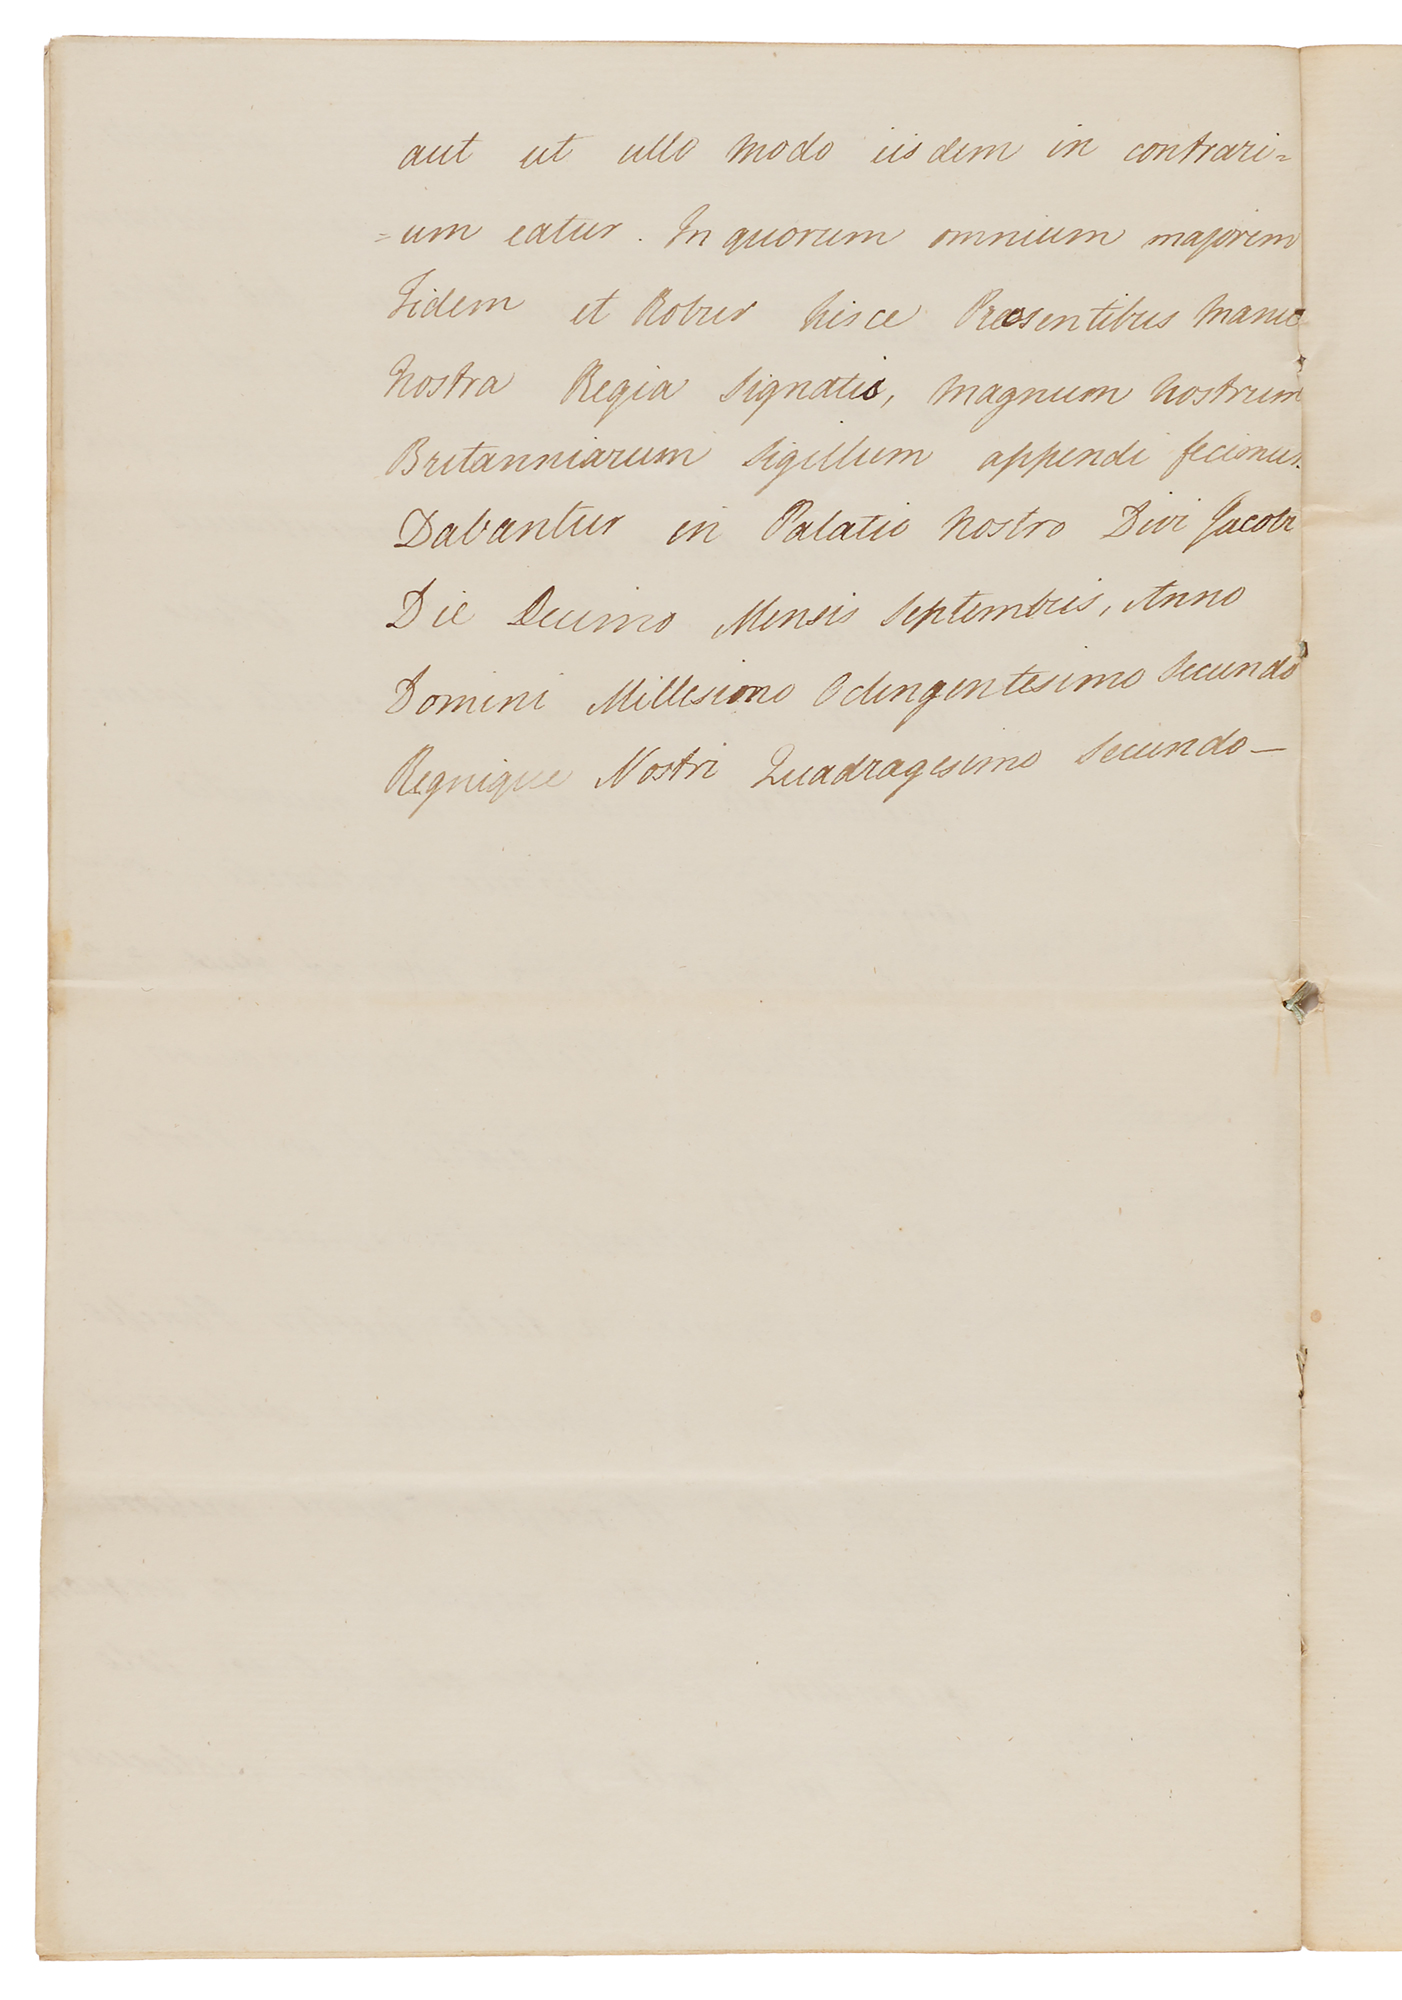 aut ut ullo modo iisdem in contrari=
=um eatur. In quorum omnium majorem
Fidem et Robur hisce Præsentibus manu
Nostra Regia Signatis, magnum nostrum
Britanniarum Sigillum appendi fecimus.
Dabantur in Palatio Nostro Divi Jacobi
Die Decimo Mensis Septembris, Anno
Domini Millesimo Octingentesimo Secundo
Regnique Nostri Quadragesimo Secundo—